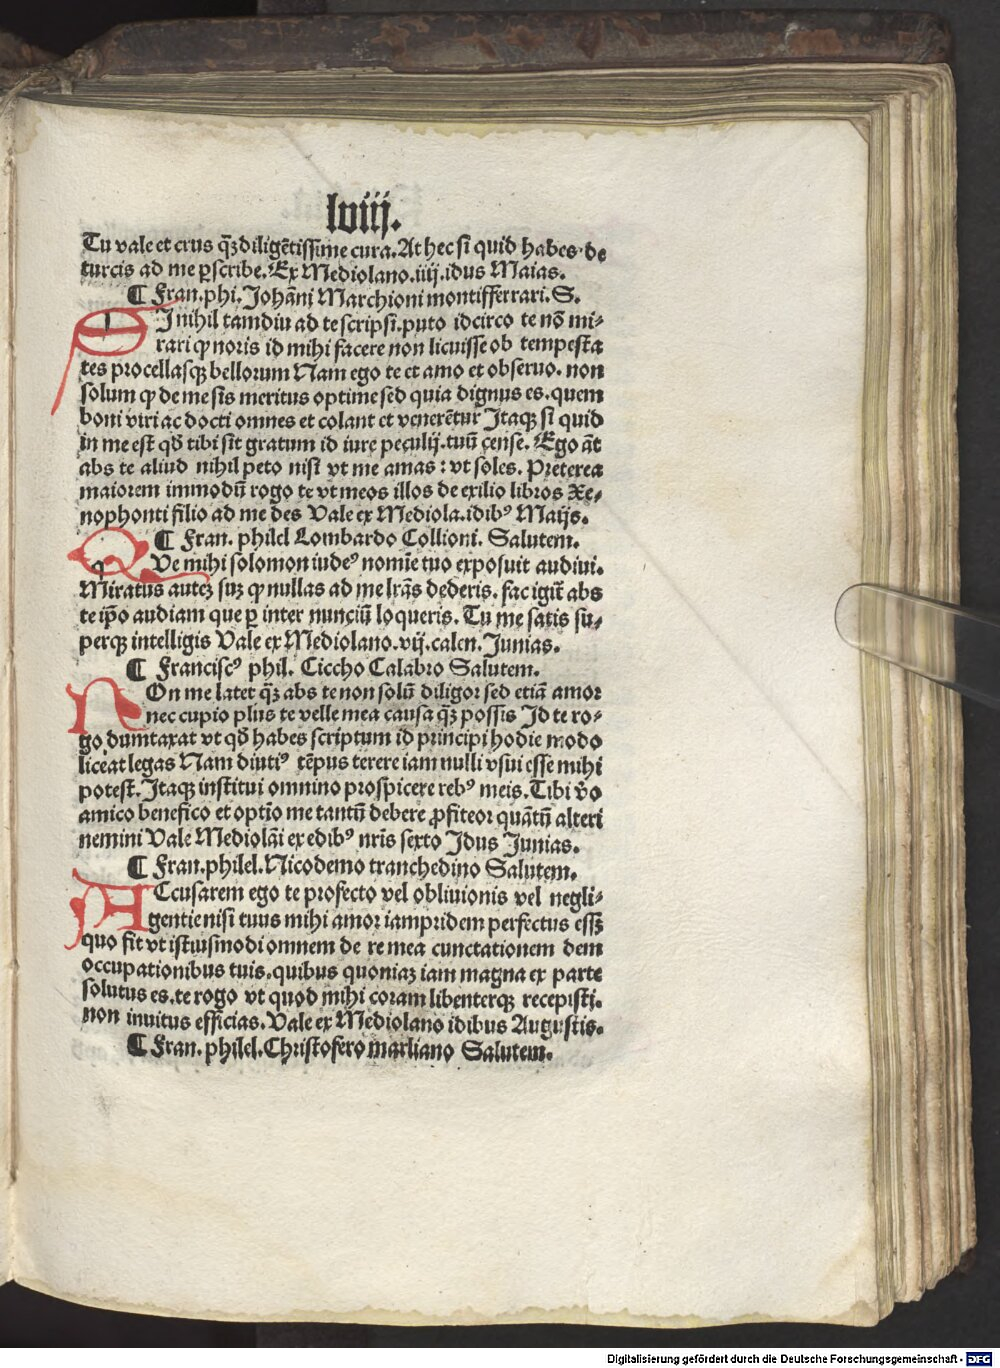 lviij.
Tu vale et crus qꝫ diligẽtissime cura. At hec si quid habes de
turcis ad me ꝑscribe. Ex Mediolano .iiij. idus Maias.
¶ Fran. phi. Johãni Marchioni montifferrari. S.
SI nihil tamdiu ad te scripsi. puto idcirco te nõ mi-
rari ꝙ noris id mihi facere non licuisse ob tempesta
tes procellasqꝫ bellorum Nam ego te et amo et obseruo. non
solum ꝙ de me sis meritus optime sed quia dignus es. quem
boni viri ac docti omnes et colant et venerẽtur Itaqꝫ si quid
in me est qď tibi sit gratum id iure peculij. tuũ cense. Ego ãt
abs te aliud nihil peto nisi vt me amas: vt soles. Preterea
maiorem immodũ rogo te vt meos illos de exilio libros Xe-
nophonti filio ad me des Vale ex Mediola. idibꝰ Maijs.
¶ Fran. philel Lombardo Collioni. Salutem.
QVe mihi solomon iudeꝰ nomīe tuo exposuit audiui.
Miratus auteꝫ suꝫ ꝙ nullas ad me lr̃as dederis. fac igit̃ abs
te ip̃o audiam que ꝑ inter nunciũ loqueris. Tu me satis su-
perqꝫ intelligis Vale ex Mediolano. vij. calen. Junias.
¶ Franciscꝰ phil. Ciccho Calabro Salutem.
NOn me latet qꝫ abs te non solũ diligor sed etiã amor
nec cupio plus te velle mea causa qꝫ possis Id te ro-
go dumtaxat vt qď habes scriptum id principi hodie modo
liceat legas Nam diutiꝰ tẽpus terere iam nulli vsui esse mihi
potest. Itaqꝫ institui omnino prospicere rebꝰ meis. Tibi ṽo
amico benefico et optīo me tantũ debere ꝓfiteor quãtũ alteri
nemini Vale Mediolãi ex edibꝰ nr̃is sexto Idus Junias.
¶ Fran. philel. Nicodemo tranchedino Salutem.
ACcusarem ego te profecto vel obliuionis vel negli-
gentie nisi tuus mihi amor iampridem perfectus essꝫ
quo fit vt istiusmodi omnem de re mea cunctationem dem
occupationibus tuis. quibus quoniaꝫ iam magna ex parte
solutus es. te rogo vt quod mihi coram libenterqꝫ recepisti.
non inuitus efficias. Vale ex Mediolano idibus Augustis.
¶ Fran. philel. Christofero marliano Salutem.
Digitalisierung gefördert durch die Deutsche Forschungsgemeinschaft - DFG